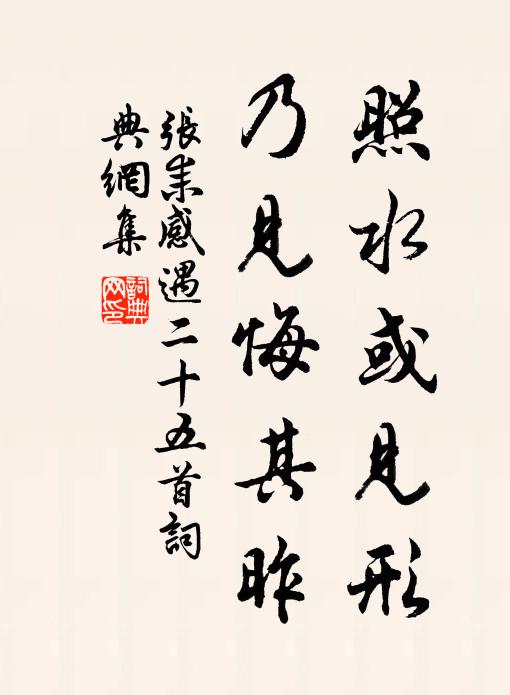 照水或見形
乃見悔其昨
張耒感遇二十五首詞
典網集
詞典網印